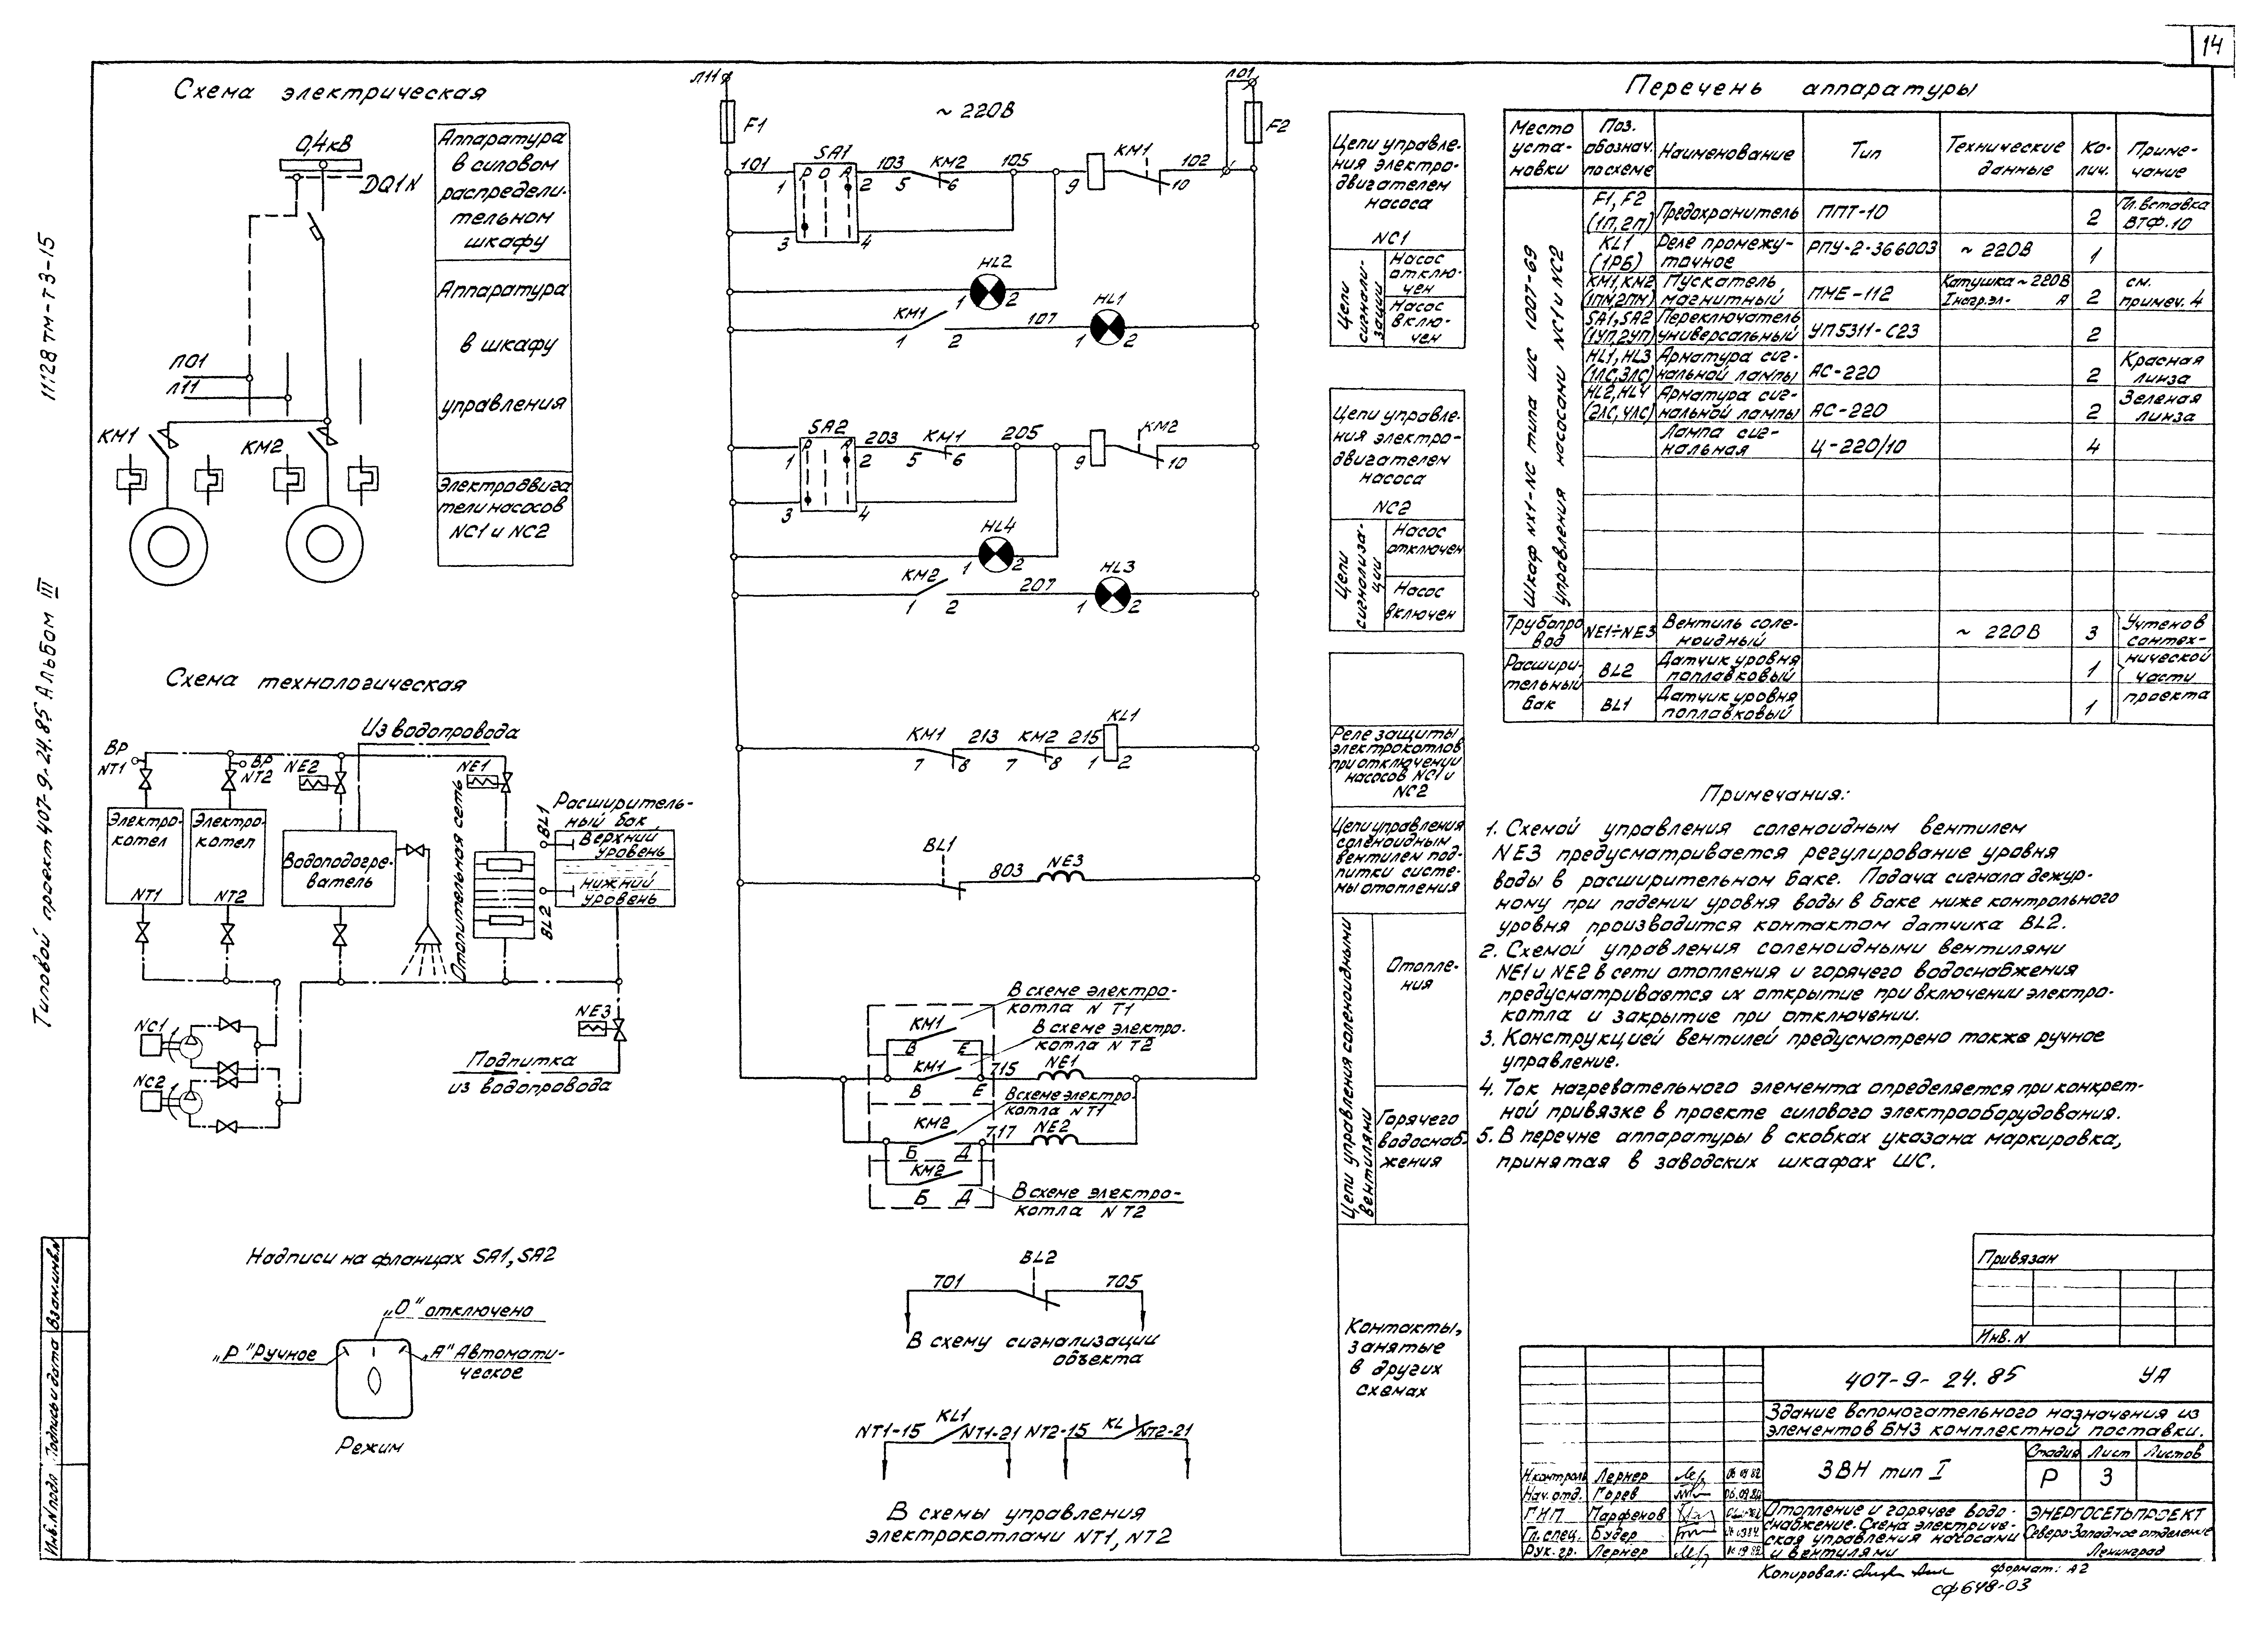 14
11128 тм-т3-15
Типовой проект 407-9-24.85 Альбом III
Схема электрическая
0,4кВ
DQ1N
Л01
Л11
КМ1
КМ2
Аппаратура
в силовом
распредели-
тельном
шкафу
Аппаратура
в шкафу
управления
Электродвига
тели насосов
NC1 и NC2
Л11
F1
~ 220В
Л01
F2
101
SA1
Р О А
1 2
3 4
103
КМ2
5 6
105
9
КМ1
10
102
HL2
1 2
КМ1
1 2
107
HL1
1 2
SA2
Р А
1 2
3 4
203
КМ1
5 6
205
9
КМ2
10
HL4
1 2
КМ2
1 2
207
HL3
1 2
КМ1
7 8
213
КМ2
7 8
215
KL1
1 2
BL1
803
NE3
В схеме электро-
котла N Т1
КМ1
В Е
В схеме электро-
котла N Т2
КМ1
В Е
715
NE1
В схеме электро-
котла N Т1
КМ2
Б Д
717
NE2
КМ2
Б Д
В схеме электро-
котла N Т2
BL2
701
705
В схему сигнализации
объекта
NT1-15
KL1
NT1-21
NT2-15
KL1
NT2-21
В схемы управления
электрокотлами NT1, NT2
Цепи управле-
ния электро-
двигателем
насоса
NC1
Цепи
сигнали-
зации
Насос
отклю-
чен
Насос
вклю-
чен
Цепи управле-
ния электро-
двигателем
насоса
NC2
Цепи
сигнализа-
ции
Насос
отключен
Насос
включен
Реле защиты
электрокотлов
при отключении
насосов NC1 и
NC2
Цепи управления
соленоидным
вентилем под-
питки систе-
мы отопления
Цепи управления соленоидными
вентилями
Отопле-
ния
Горячего
водоснаб-
жения
Контакты,
занятые
в других
схемах
Схема технологическая
Из водопровода
ВР
NT1
ВР
NT2
NE2
NE1
Электро-
котел
NT1
Электро-
котел
NT2
Водоподогре-
ватель
Отопительная сеть
BL1
BL2
Расширитель-
ный бак
Верхний
уровень
Нижний
уровень
NC1
NC2
NE3
Подпитка
из водопровода
Надписи на фланцах SA1, SA2
„О" отключено
„Р" Ручное
„А" Автомати-
ческое
Режим
Перечень аппаратуры
Место
уста-
новки
Поз.
обознач.
по схеме
Наименование
Тип
Технические
данные
Ко-
лич.
Приме-
чание
Шкаф NX1-NC типа ШС 1007-69
управления насосами NC1 и NC2
F1, F2
(1П, 2П)
Предохранитель
ППТ-10
2
Пл. вставка
ВТФ.10
KL1
(1РБ)
Реле промежу-
точное
РПУ-2-366003
~ 220В
1
КМ1, КМ2
(1ПМ, 2ПМ)
Пускатель
магнитный
ПМЕ-112
Катушка ~ 220В
Iнагр.эл- А
2
см.
примеч. 4
SA1, SA2
(1УП, 2УП)
Переключатель
универсальный
УП5311-С23
2
HL1, HL3
(1ЛС, 3ЛС)
Арматура сиг-
нальной лампы
АС-220
2
Красная
линза
HL2, HL4
(2ЛС, 4ЛС)
Арматура сиг-
нальной лампы
АС-220
2
Зеленая
линза
Лампа сиг-
нальная
Ц-220/10
4
Трубопро
вод
NE1÷NE3
Вентиль соле-
ноидный
~ 220В
3
Учтено в
сантех-
нической
части
проекта
Расшири-
тельный
бак
BL2
Датчик уровня
поплавковый
1
BL1
Датчик уровня
поплавковый
1
Примечания:
1. Схемой управления соленоидным вентилем
NE3 предусматривается регулирование уровня
воды в расширительном баке. Подача сигнала дежур-
ному при падении уровня воды в баке ниже контрольного
уровня производится контактом датчика BL2.
2. Схемой управления соленоидными вентилями
NE1 и NE2 в сети отопления и горячего водоснабжения
предусматривается их открытие при включении электро-
котла и закрытие при отключении.
3. Конструкцией вентилей предусмотрено также ручное
управление.
4. Ток нагревательного элемента определяется при конкрет-
ной привязке в проекте силового электрооборудования.
5. В перечне аппаратуры в скобках указана маркировка,
принятая в заводских шкафах ШС.
Привязан
Инв. N
407-9-24.85 УА
Здание вспомогательного назначения из
элементов БМЗ комплектной поставки.
ЗВН тип I
Стадия Лист Листов
Р 3
Н.контроль Лернер
Нач. отд. Горев
ГИП Парфенов
Гл. спец. Будер
Рук. гр. Лернер
Отопление и горячее водо-
снабжение. Схема электриче-
ская управления насосами
и вентилями
ЭНЕРГОСЕТЬПРОЕКТ
Северо-Западное отделение
Ленинград
Копировал:
Формат: А2
сф648-03
Инв.N подл. Подпись и дата Взам.инв.N